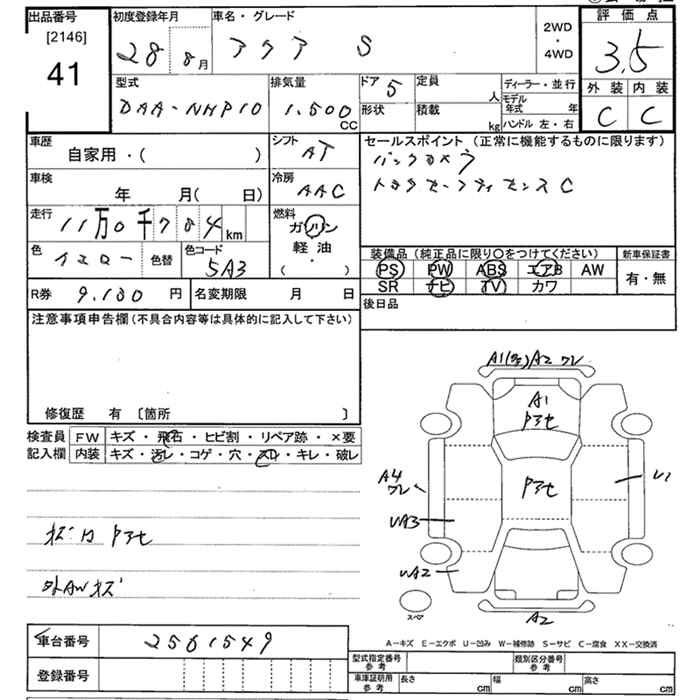 出品番号
[2146]
41
初度登録年月
28 8月
車名・グレード
アクア S
2WD
・
4WD
評価点
3.5
外装 内装
C C
型式
DAA-NHP10
排気量
1.500
CC
ドア 5
定員
人
形状
積載
kg
ディーラー・並行
モデル年式 年
ハンドル 左・右
車歴
自家用・( )
シフト
AT
車検
年 月( 日)
冷房
AAC
走行
11万0千784km
燃料
ガソリン
軽油
( ・ )
色 イエロー 色替
色コード
5A3
R券 9.180 円
名変期限 月 日
セールスポイント (正常に機能するものに限ります)
バックカメラ
トヨタセーフティセンスC
装備品 (純正品に限り○をつけてください)
PS PW ABS エアB AW
SR ナビ TV カワ
新車保証書
有・無
後日品
注意事項申告欄(不具合内容等は具体的に記入して下さい)
修復歴 有 〔箇所 〕
検査員
記入欄
FW キズ・飛石・ヒビ割・リペア跡・×要
内装 キズ・汚レ・コゲ・穴・スレ・キレ・破レ
外AWキズ
A2 ワレ
A1
A4
ワレ
UA3
UA2
U1
A2
スペア
A-キズ E-エクボ U-凹み W-補修跡 S-サビ C-腐食 XX-交換済
車台番号
2561549
登録番号
型式指定番号
参考
類別区分番号
参考
車庫証明用
参考
長さ cm
幅 cm
高さ cm